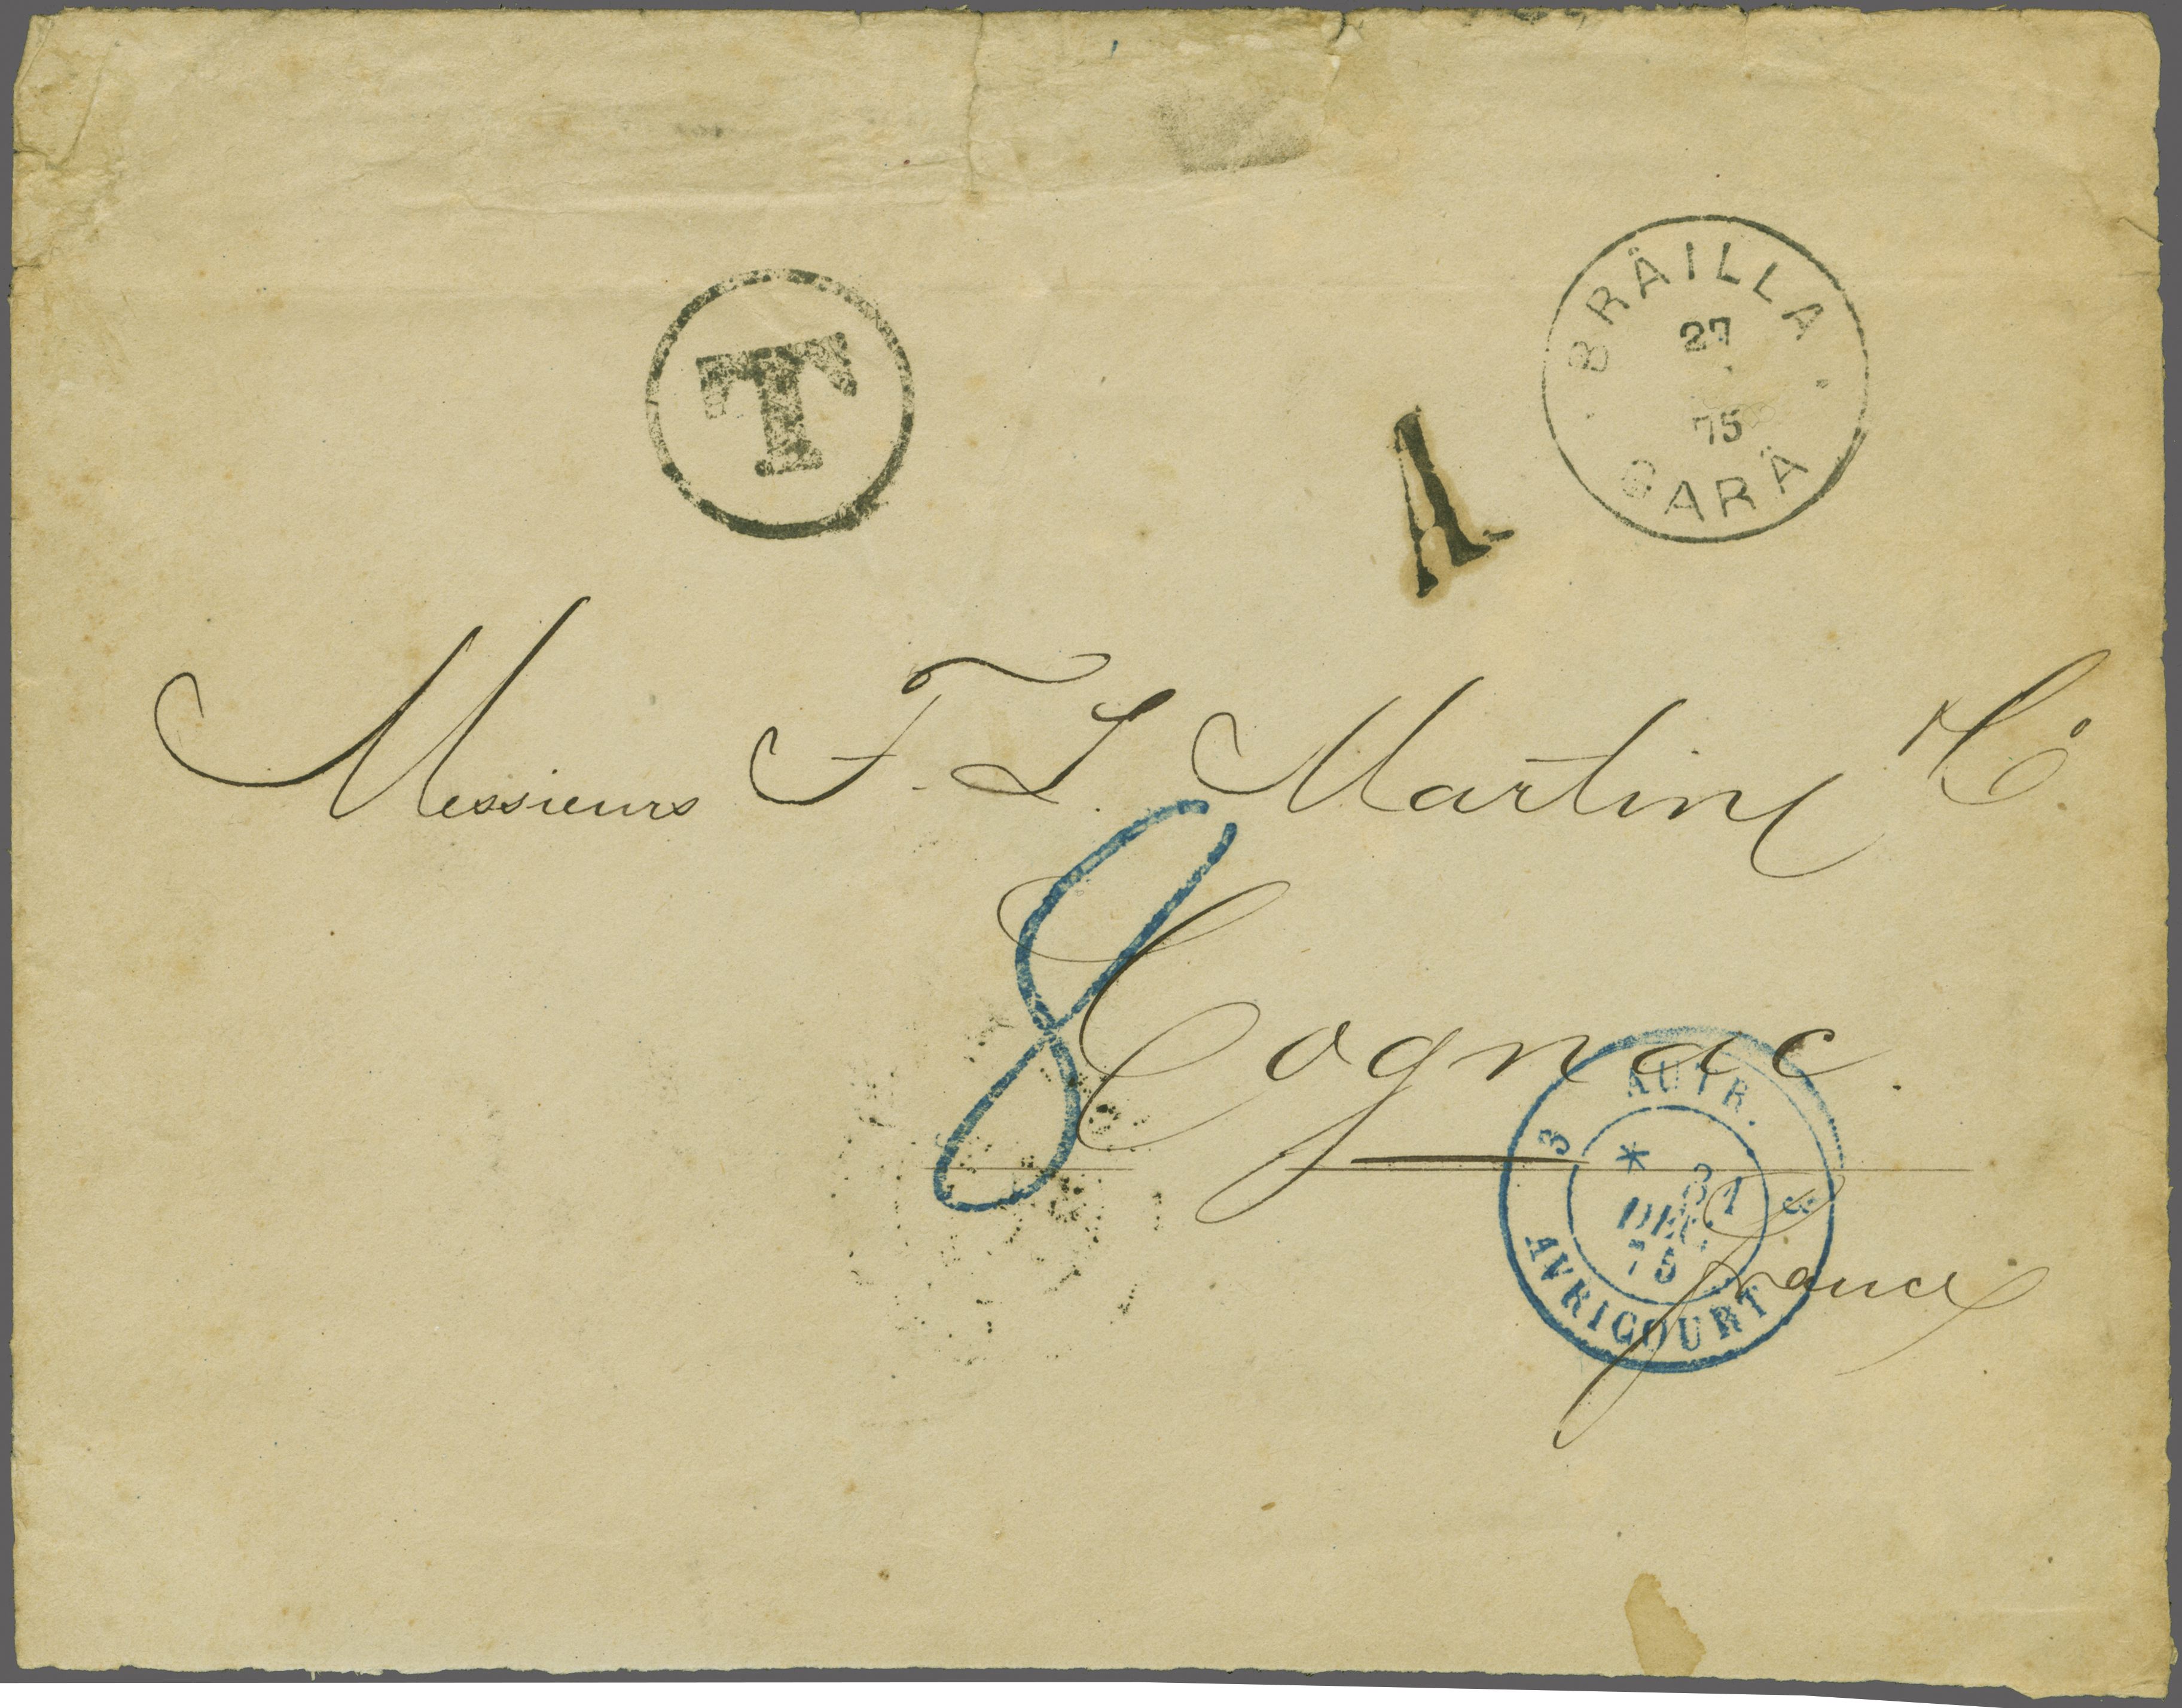 T
BRĂILLA
27
75
GARĂ
A
Messieurs F. L. Martin & Cº
8
Cognac.
AUTR.
3 * 31
DEC.
75
AVRICOURT
france